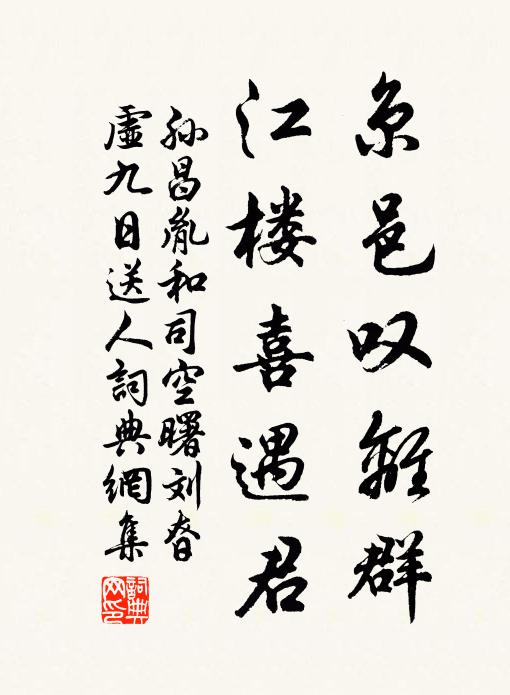 京邑叹離群
江楼喜遇君
孙昌胤和司空曙刘眘
虛九日送人詞典網集
詞典
网印